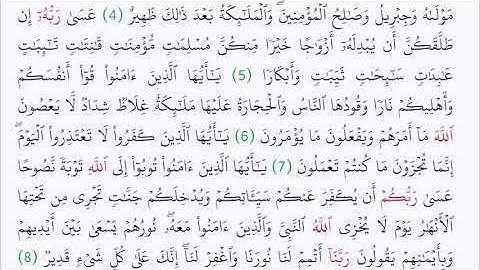 مَوْلَىٰهُ وَجِبْرِيلُ وَصَٰلِحُ ٱلْمُؤْمِنِينَ ۖ وَٱلْمَلَٰٓئِكَةُ بَعْدَ ذَٰلِكَ ظَهِيرٌ (4) عَسَىٰ رَبُّهُۥٓ إِن
طَلَّقَكُنَّ أَن يُبْدِلَهُۥٓ أَزْوَٰجًا خَيْرًا مِّنكُنَّ مُسْلِمَٰتٍ مُّؤْمِنَٰتٍ قَٰنِتَٰتٍ تَٰٓئِبَٰتٍ
عَٰبِدَٰتٍ سَٰٓئِحَٰتٍ ثَيِّبَٰتٍ وَأَبْكَارًا (5) يَٰٓأَيُّهَا ٱلَّذِينَ ءَامَنُوا۟ قُوٓا۟ أَنفُسَكُمْ
وَأَهْلِيكُمْ نَارًا وَقُودُهَا ٱلنَّاسُ وَٱلْحِجَارَةُ عَلَيْهَا مَلَٰٓئِكَةٌ غِلَاظٌ شِدَادٌ لَّا يَعْصُونَ
ٱللَّهَ مَآ أَمَرَهُمْ وَيَفْعَلُونَ مَا يُؤْمَرُونَ (6) يَٰٓأَيُّهَا ٱلَّذِينَ كَفَرُوا۟ لَا تَعْتَذِرُوا۟ ٱلْيَوْمَ ۖ
إِنَّمَا تُجْزَوْنَ مَا كُنتُمْ تَعْمَلُونَ (7) يَٰٓأَيُّهَا ٱلَّذِينَ ءَامَنُوا۟ تُوبُوٓا۟ إِلَى ٱللَّهِ تَوْبَةً نَّصُوحًا
عَسَىٰ رَبُّكُمْ أَن يُكَفِّرَ عَنكُمْ سَيِّـَٔاتِكُمْ وَيُدْخِلَكُمْ جَنَّٰتٍ تَجْرِى مِن تَحْتِهَا
ٱلْأَنْهَٰرُ يَوْمَ لَا يُخْزِى ٱللَّهُ ٱلنَّبِىَّ وَٱلَّذِينَ ءَامَنُوا۟ مَعَهُۥ ۖ نُورُهُمْ يَسْعَىٰ بَيْنَ أَيْدِيهِمْ
وَبِأَيْمَٰنِهِمْ يَقُولُونَ رَبَّنَآ أَتْمِمْ لَنَا نُورَنَا وَٱغْفِرْ لَنَآ ۖ إِنَّكَ عَلَىٰ كُلِّ شَىْءٍ قَدِيرٌ (8)